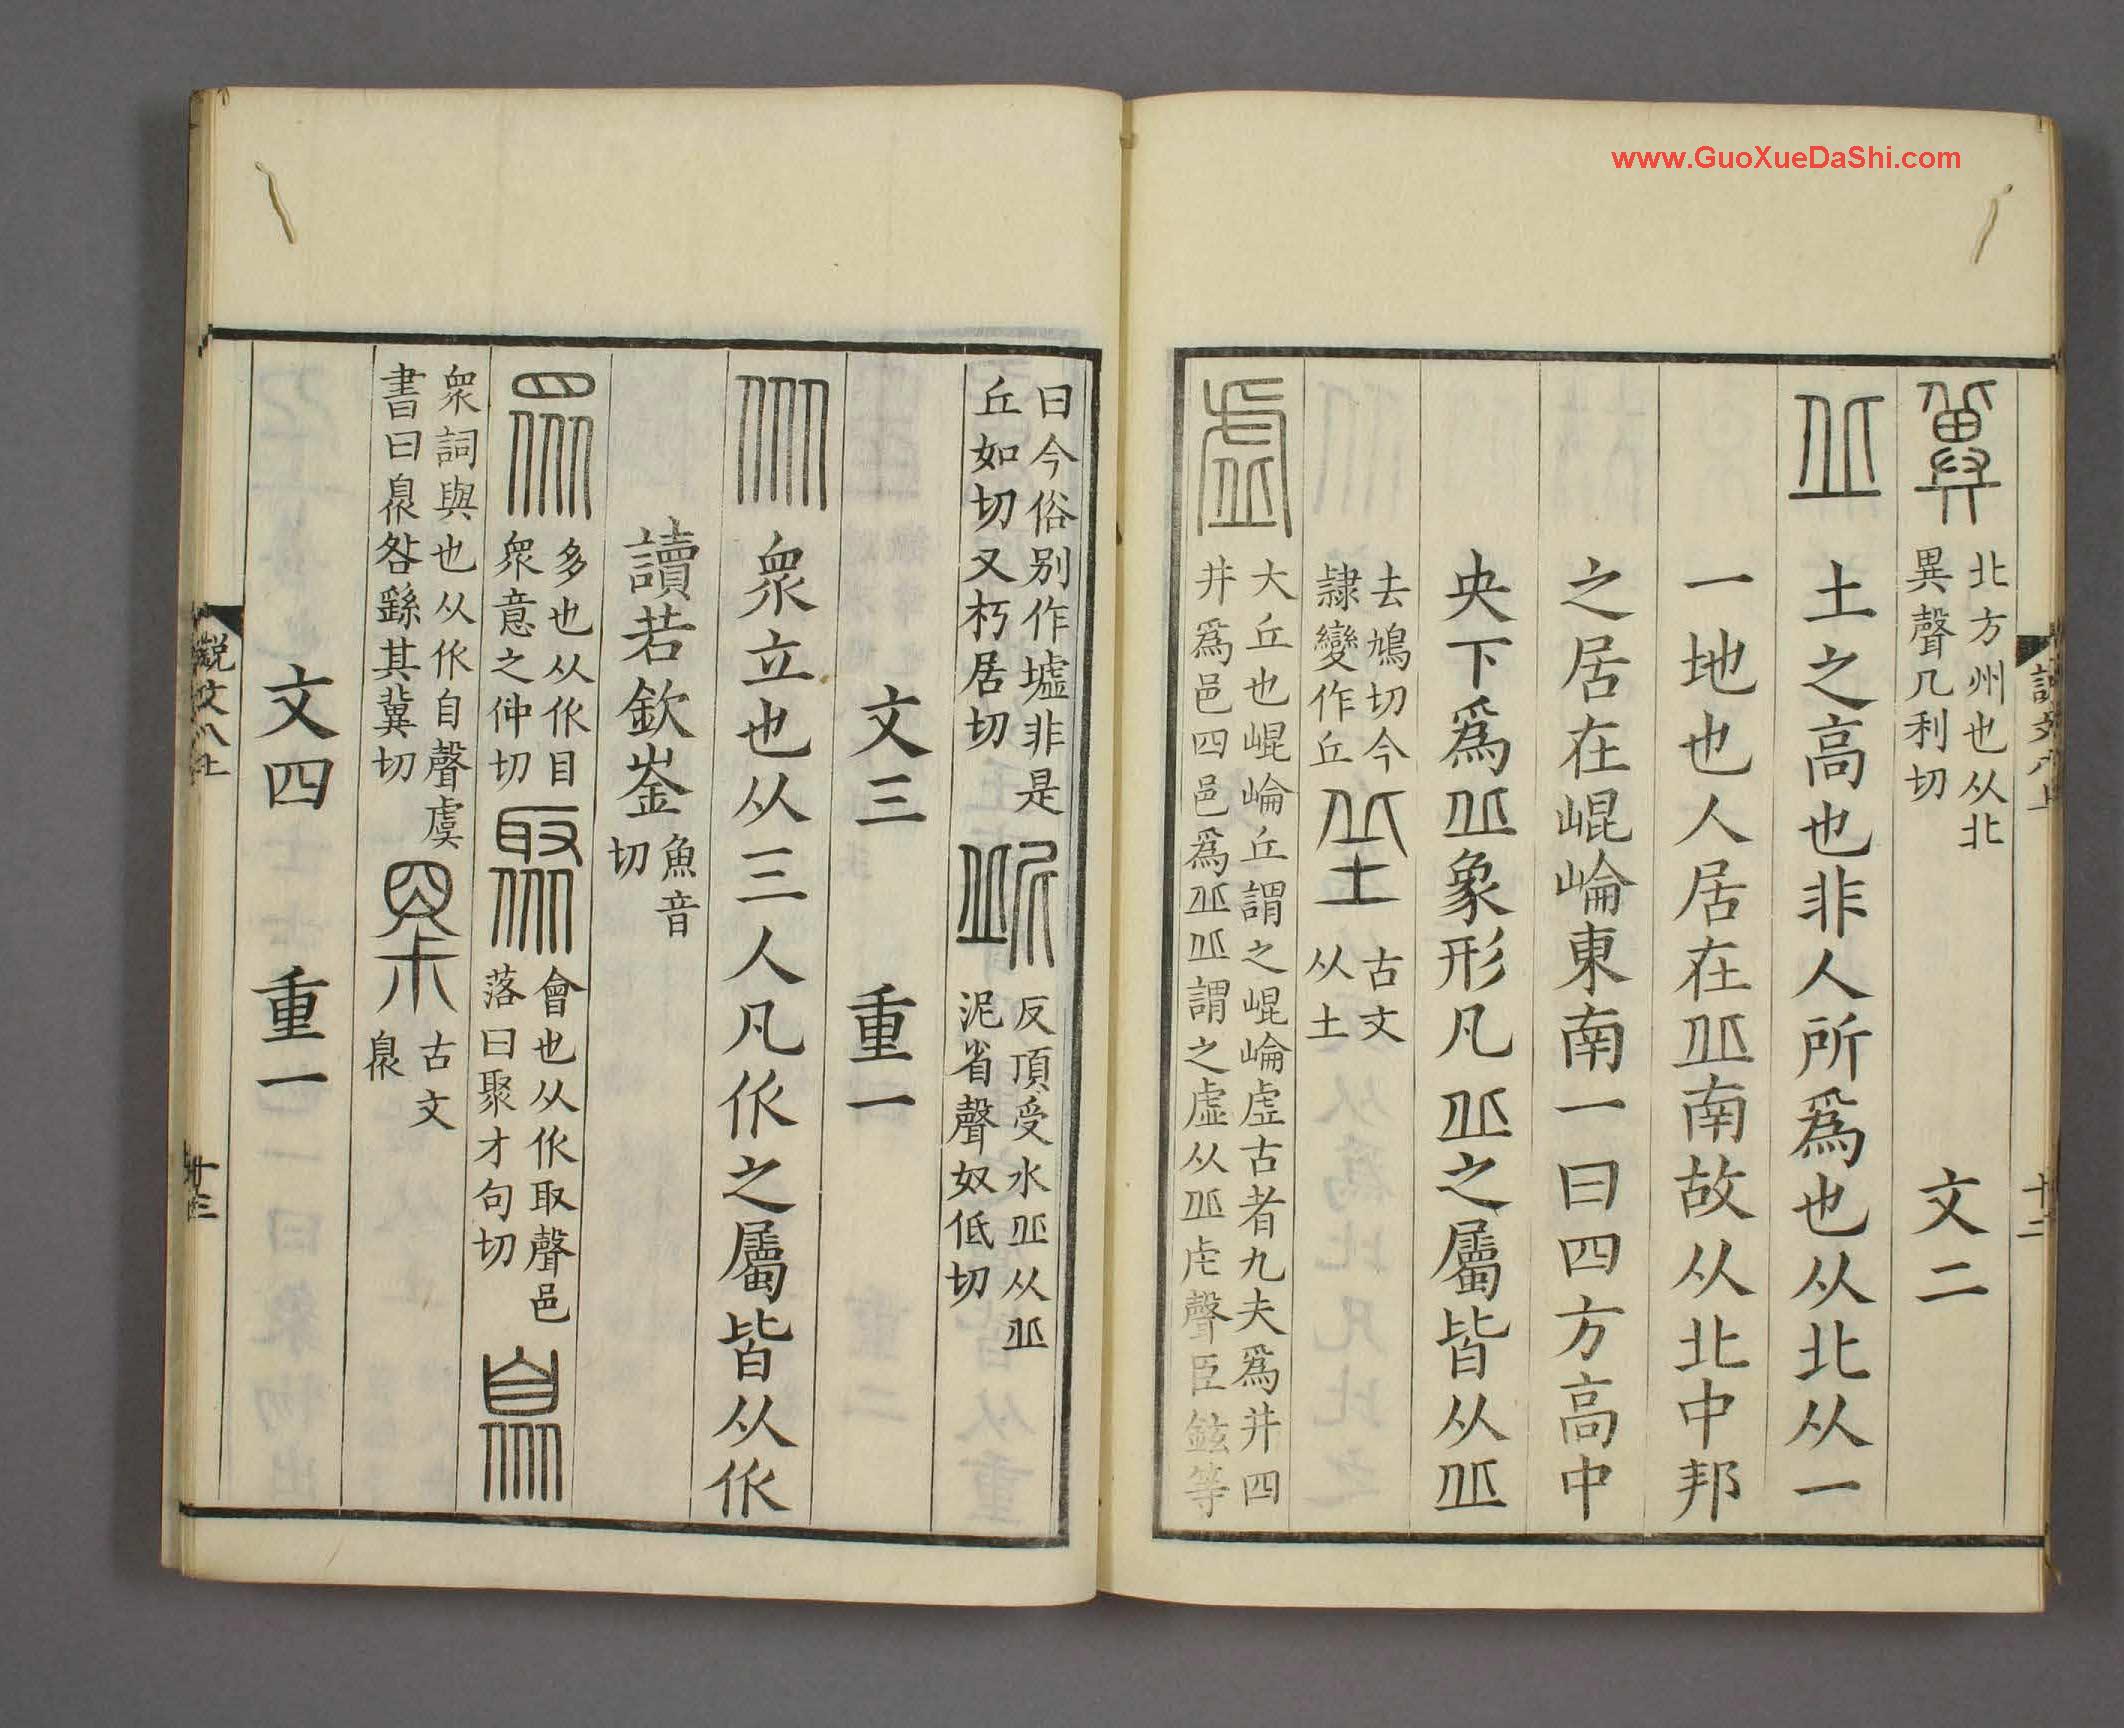 www.GuoXueDaShi.com
冀 北方州也从北
異聲几利切 文二
丘 土之高也非人所爲也从北从一
一地也人居在丘南故从北中邦
之居在崐崘東南一曰四方高中
央下爲丘象形凡丘之屬皆从丘
去鳩切今
隸變作丘 𡊣 古文
从土
虛 大丘也崐崘丘謂之崐崘虛古者九夫爲井四
井爲邑四邑爲丘丘謂之虛从丘虍聲臣鉉等
曰今俗別作墟非是
丘如切又朽居切 𡰥 反頂受水丘从丘
泥省聲奴低切
文三 重一
㐺 眾立也从三人凡㐺之屬皆从㐺
讀若欽崟 魚音
切
眾 多也从㐺目
眾意之仲切 聚 會也从㐺取聲邑
落曰聚才句切 𣌻
眾詞與也从㐺自聲虞
書曰𣌻咎繇其冀切 古文
𣌻
文四 重一
説文八上
十二
説文八上
十三